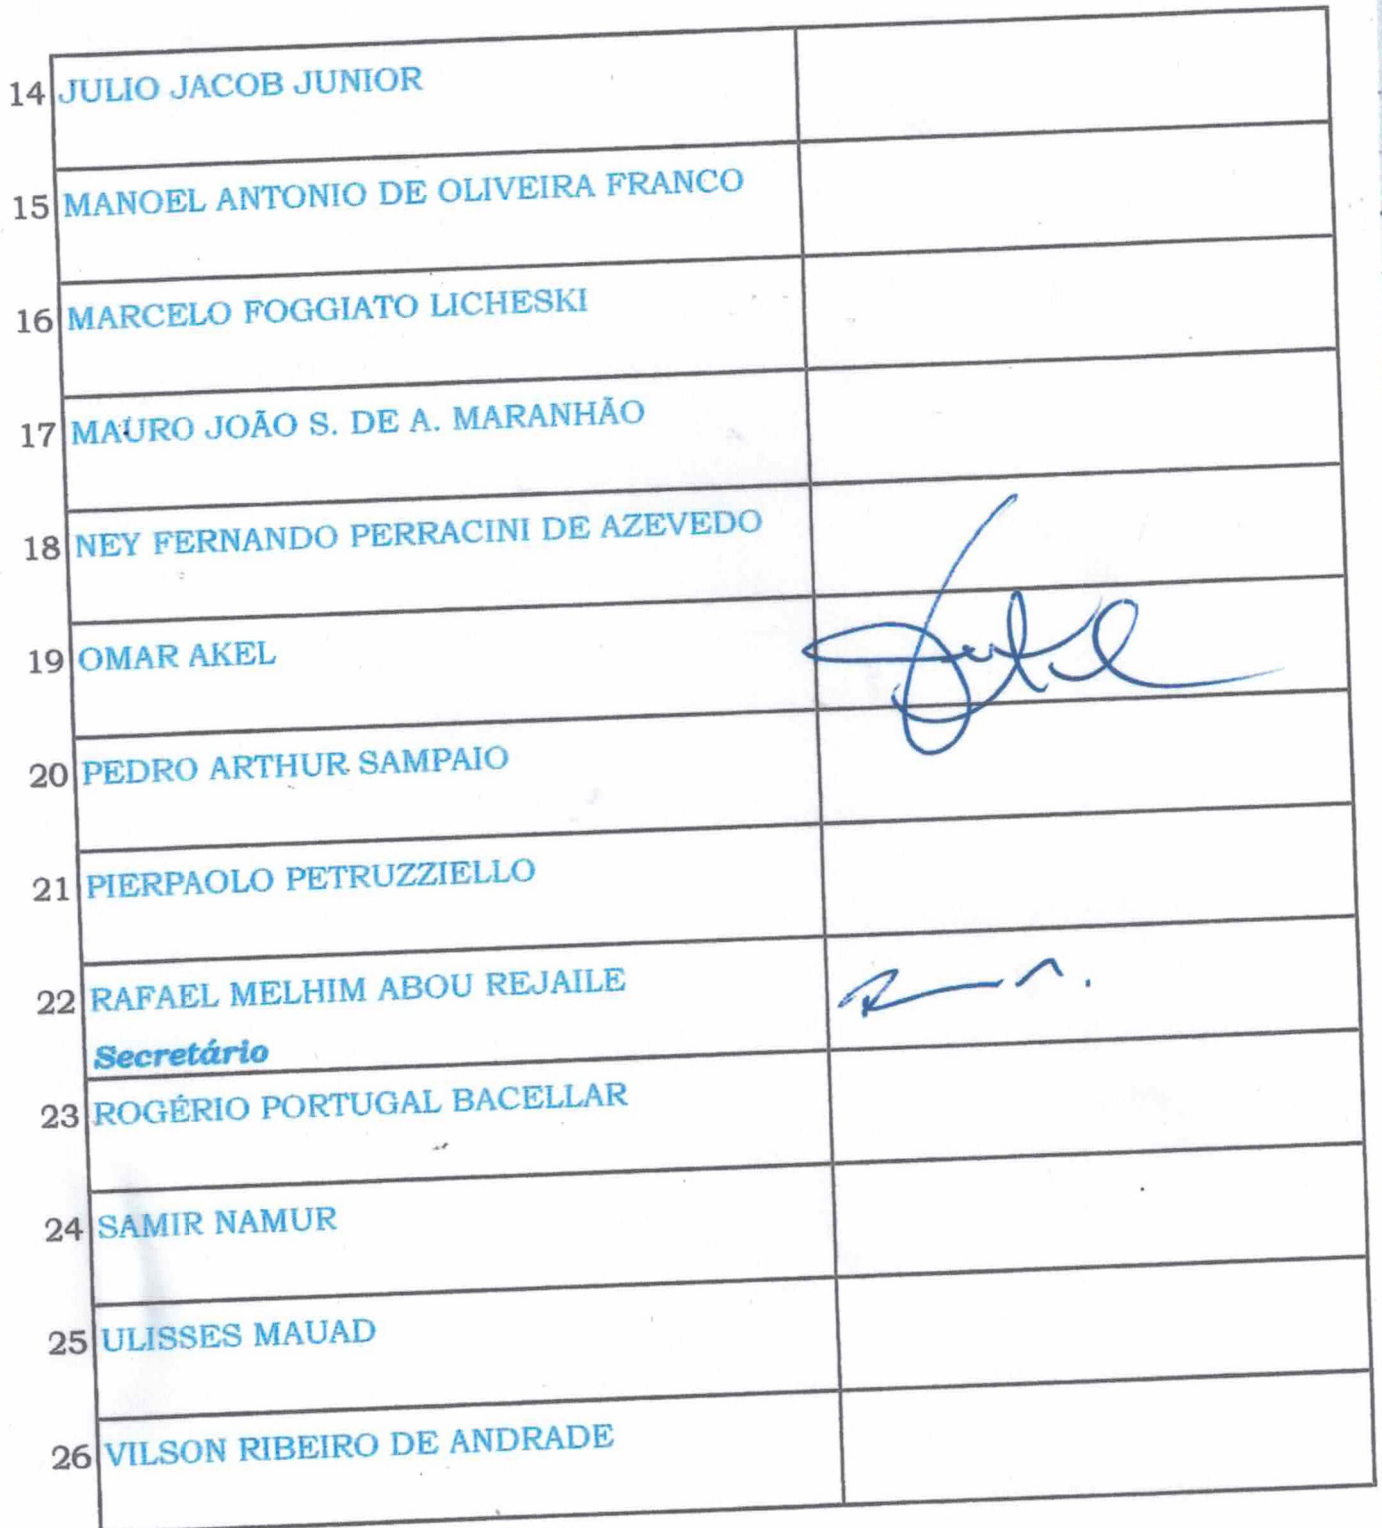 14 JULIO JACOB JUNIOR
15 MANOEL ANTONIO DE OLIVEIRA FRANCO
16 MARCELO FOGGIATO LICHESKI
17 MAURO JOÃO S. DE A. MARANHÃO
18 NEY FERNANDO PERRACINI DE AZEVEDO
19 OMAR AKEL
20 PEDRO ARTHUR SAMPAIO
21 PIERPAOLO PETRUZZIELLO
22 RAFAEL MELHIM ABOU REJAILE
Secretário
23 ROGÉRIO PORTUGAL BACELLAR
24 SAMIR NAMUR
25 ULISSES MAUAD
26 VILSON RIBEIRO DE ANDRADE